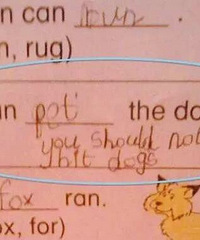 n can run .
n, rug)
an pet the do
you should not
hit dogs
fox ran.
ox, for)